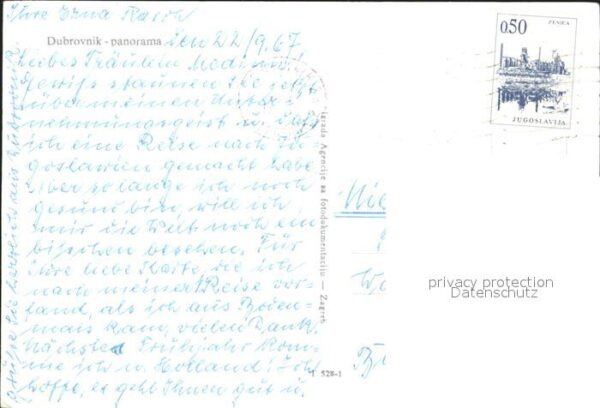 Ihre Erna Rasch
Dubrovnik - panorama
den 22/9.67
Liebes Fräulein
Gewiß staunen Sie jetzt
über meinen Unter-
nehmungsgeist u. daß
ich eine Reise nach Ju-
goslawien gemacht habe
Aber so lange ich noch
gesund bin, will ich
mir die Welt noch ein
bißchen besehen. Für
ihre liebe Karte, die ich
nach meiner Reise vor-
fand, als ich aus Boden-
mais kam, vielen Dank.
Nächstes Frühjahr kom-
me ich n. Holland. Ich
hoffe, es geht Ihnen gut u.
grüße Sie herzlich aus Dubrovnik
Agencije za fotodokumentaciju — Zagreb
1 528-1
0.50
ZENICA
JUGOSLAVIJA
privacy protection
Datenschutz